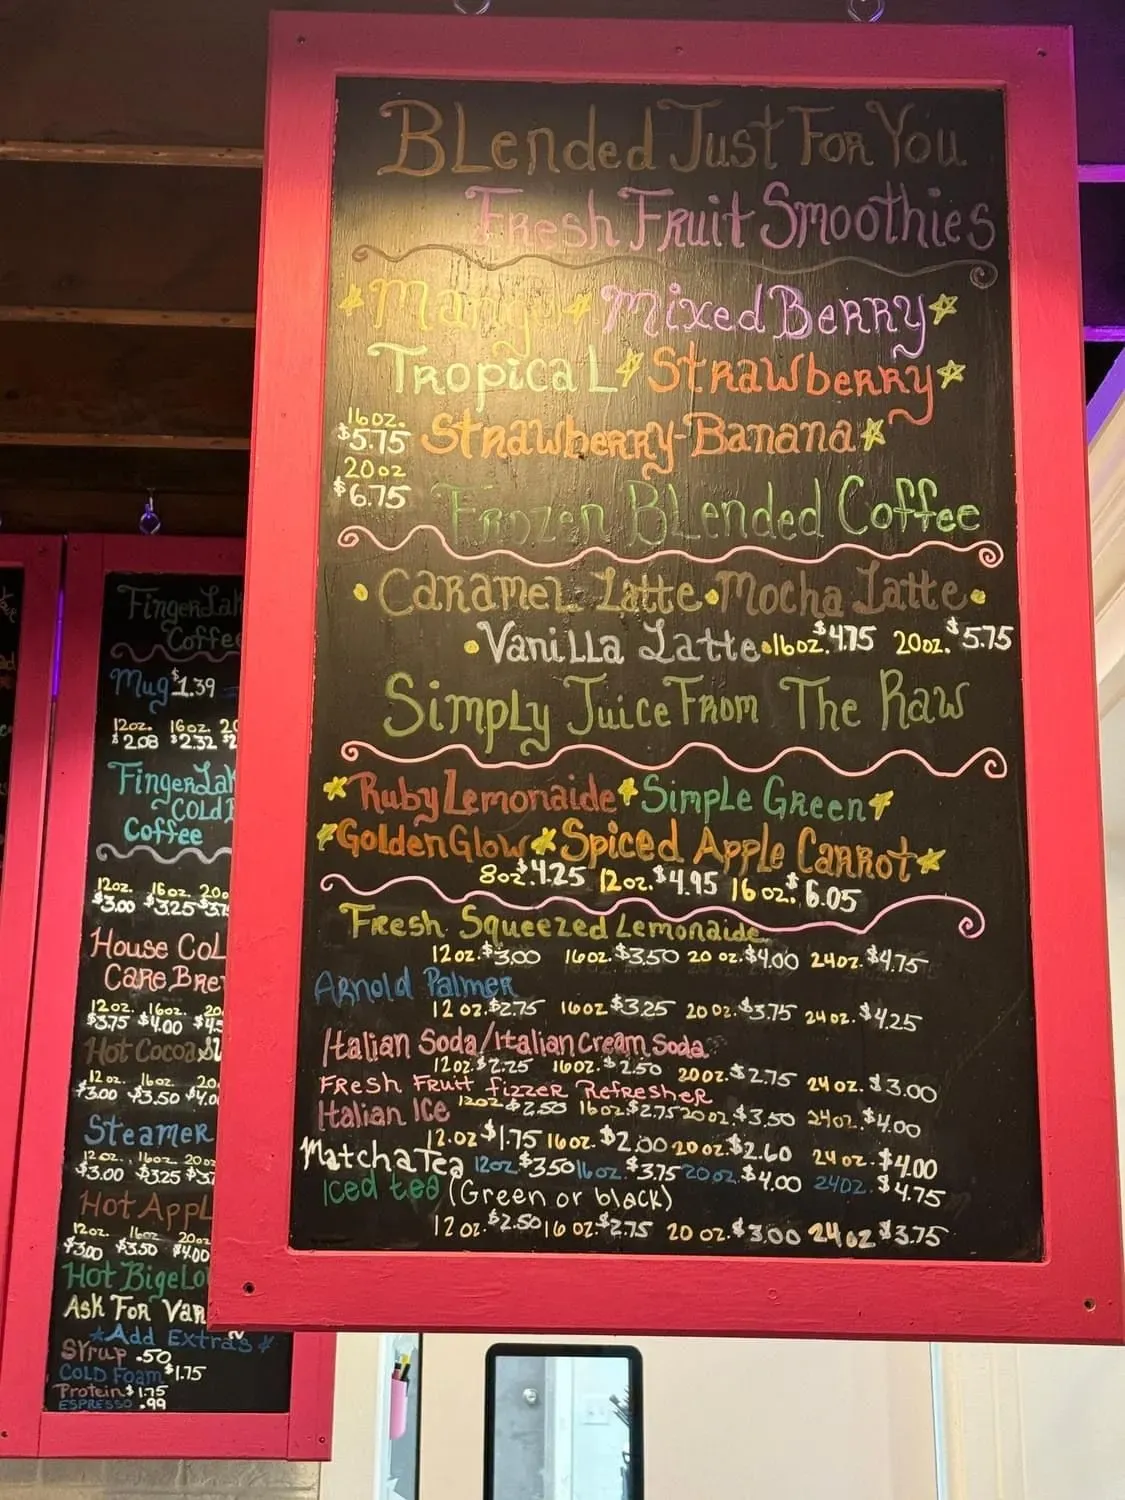 Blended Just For You
Fresh Fruit Smoothies
Mixed Berry
Tropical Strawberry
16oz.
$5.75 Strawberry-Banana
20oz
$6.75
Frozen Blended Coffee
Caramel Latte Mocha Latte
Vanilla Latte 16oz. $4.75 20oz. $5.75
Simply Juice From The Raw
Ruby Lemonaide Simple Green
Golden Glow Spiced Apple Carrot
8oz $4.25 12oz. $4.95 16oz. $6.05
Fresh Squeezed Lemonaide
12oz. $3.00 16oz. $3.50 20oz. $4.00 24oz. $4.75
Arnold Palmer
12oz. $2.75 16oz $3.25 20oz. $3.75 24oz. $4.25
Italian Soda/Italian Cream Soda
12oz. $2.25 16oz. $2.50 20oz. $2.75 24oz. $3.00
Fresh Fruit fizzer Refresher
12oz $2.50 16oz. $2.75 20oz. $3.50 24oz. $4.00
Italian Ice
12.oz $1.75 16oz. $2.00 20oz. $2.60 24oz. $4.00
Matcha Tea 12oz $3.50 16oz. $3.75 20oz. $4.00 24oz. $4.75
Iced tea (Green or black)
12oz. $2.50 16oz. $2.75 20oz. $3.00 24oz $3.75
Coffee
Mug $1.39
12oz. 16oz
$2.08 $2.32
Cold
Coffee
12oz. 16oz. 20o
$3.00 $3.25
House Col
Cake Bre
12oz. 16oz. 20
$3.75 $4.00
Hot Cocoa
12oz. 16oz. 20
$3.00 $3.50 $4.0
Steamer
12oz. 16oz. 20oz
$3.00 $3.25
Hot Appl
12oz. 16oz 20oz
$3.00 $3.50 $4.00
Hot Bigelo
Ask For Var
Add Extras
Syrup .50
Cold Foam $1.75
Protein $1.75
Espresso .99